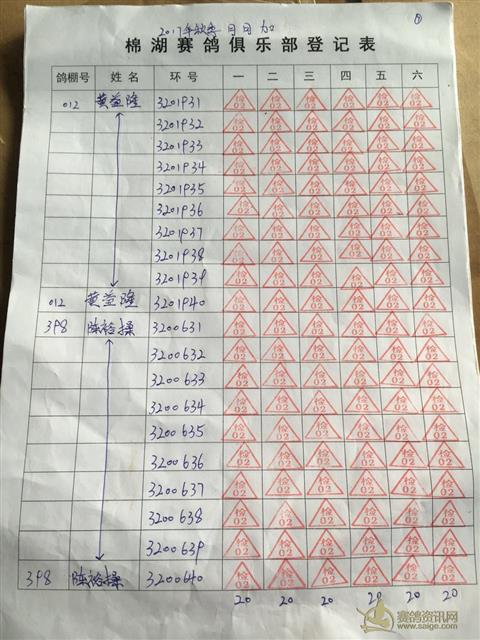 2017年秋季 月日 加 ①
棉湖赛鸽俱乐部登记表
鸽棚号 姓名 环号 一 二 三 四 五 六
012 黄益隆 3201931 检02 检02 检02 检02 检02 检02
3201932 检02 检02 检02 检02 检02 检02
3201933 检02 检02 检02 检02 检02 检02
3201934 检02 检02 检02 检02 检02 检02
3201935 检02 检02 检02 检02 检02 检02
3201936 检02 检02 检02 检02 检02 检02
3201937 检02 检02 检02 检02 检02 检02
3201938 检02 检02 检02 检02 检02 检02
3201939 检02 检02 检02 检02 检02 检02
012 黄益隆 3201940 检02 检02 检02 检02 检02 检02
398 陈裕操 3200631 检02 检02 检02 检02 检02 检02
3200632 检02 检02 检02 检02 检02 检02
3200633 检02 检02 检02 检02 检02 检02
3200634 检02 检02 检02 检02 检02 检02
3200635 检02 检02 检02 检02 检02 检02
3200636 检02 检02 检02 检02 检02 检02
3200637 检02 检02 检02 检02 检02 检02
3200638 检02 检02 检02 检02 检02 检02
3200639 检02 检02 检02 检02 检02 检02
398 陈裕操 3200640 检02 检02 检02 检02 检02 检02
20 20 20 20 20 20
赛鸽资讯网
www.saige.com